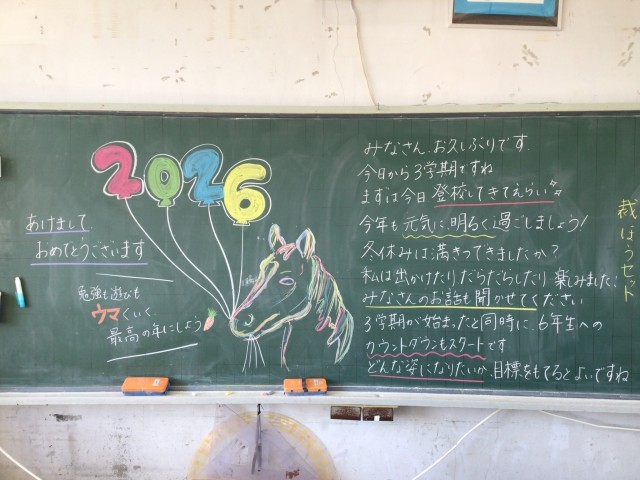 2026
あけまして
おめでとうございます
勉強も遊びも
ウマくいく、
最高の年にしよう
みなさん、お久しぶりです
今日から3学期ですね
まずは今日登校してきてえらい
今年も元気に、明るく過ごしましょう!
冬休みは満きつできましたか?
私は出かけたりだらだらしたり楽しみました、
みなさんのお話も聞かせてください
3学期が始まったと同時に6年生への
カウントダウンもスタートです
どんな姿になりたいか、目標をもてるとよいですね
裁ほうセット